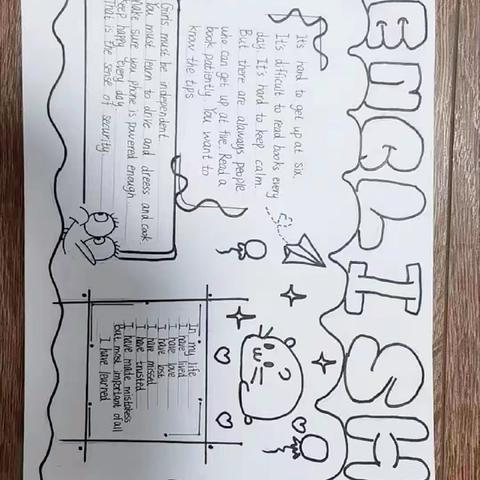 ENGLISH
It's hard to get up at six.
It's difficult to read books every
day. It's hard to keep calm.
But there are always people
who can get up at five. Read a
book patiently. You want to
know the tips
Girls must be independent.
You must learn to drive and dress and cook.
Make sure you phone is powered enough
Keep happy every day
That is the sense of security.
In my life
I have lived
I have love
I have lost
I have missed
I have trusted
I have made mistakes
But most important of all
I have learned